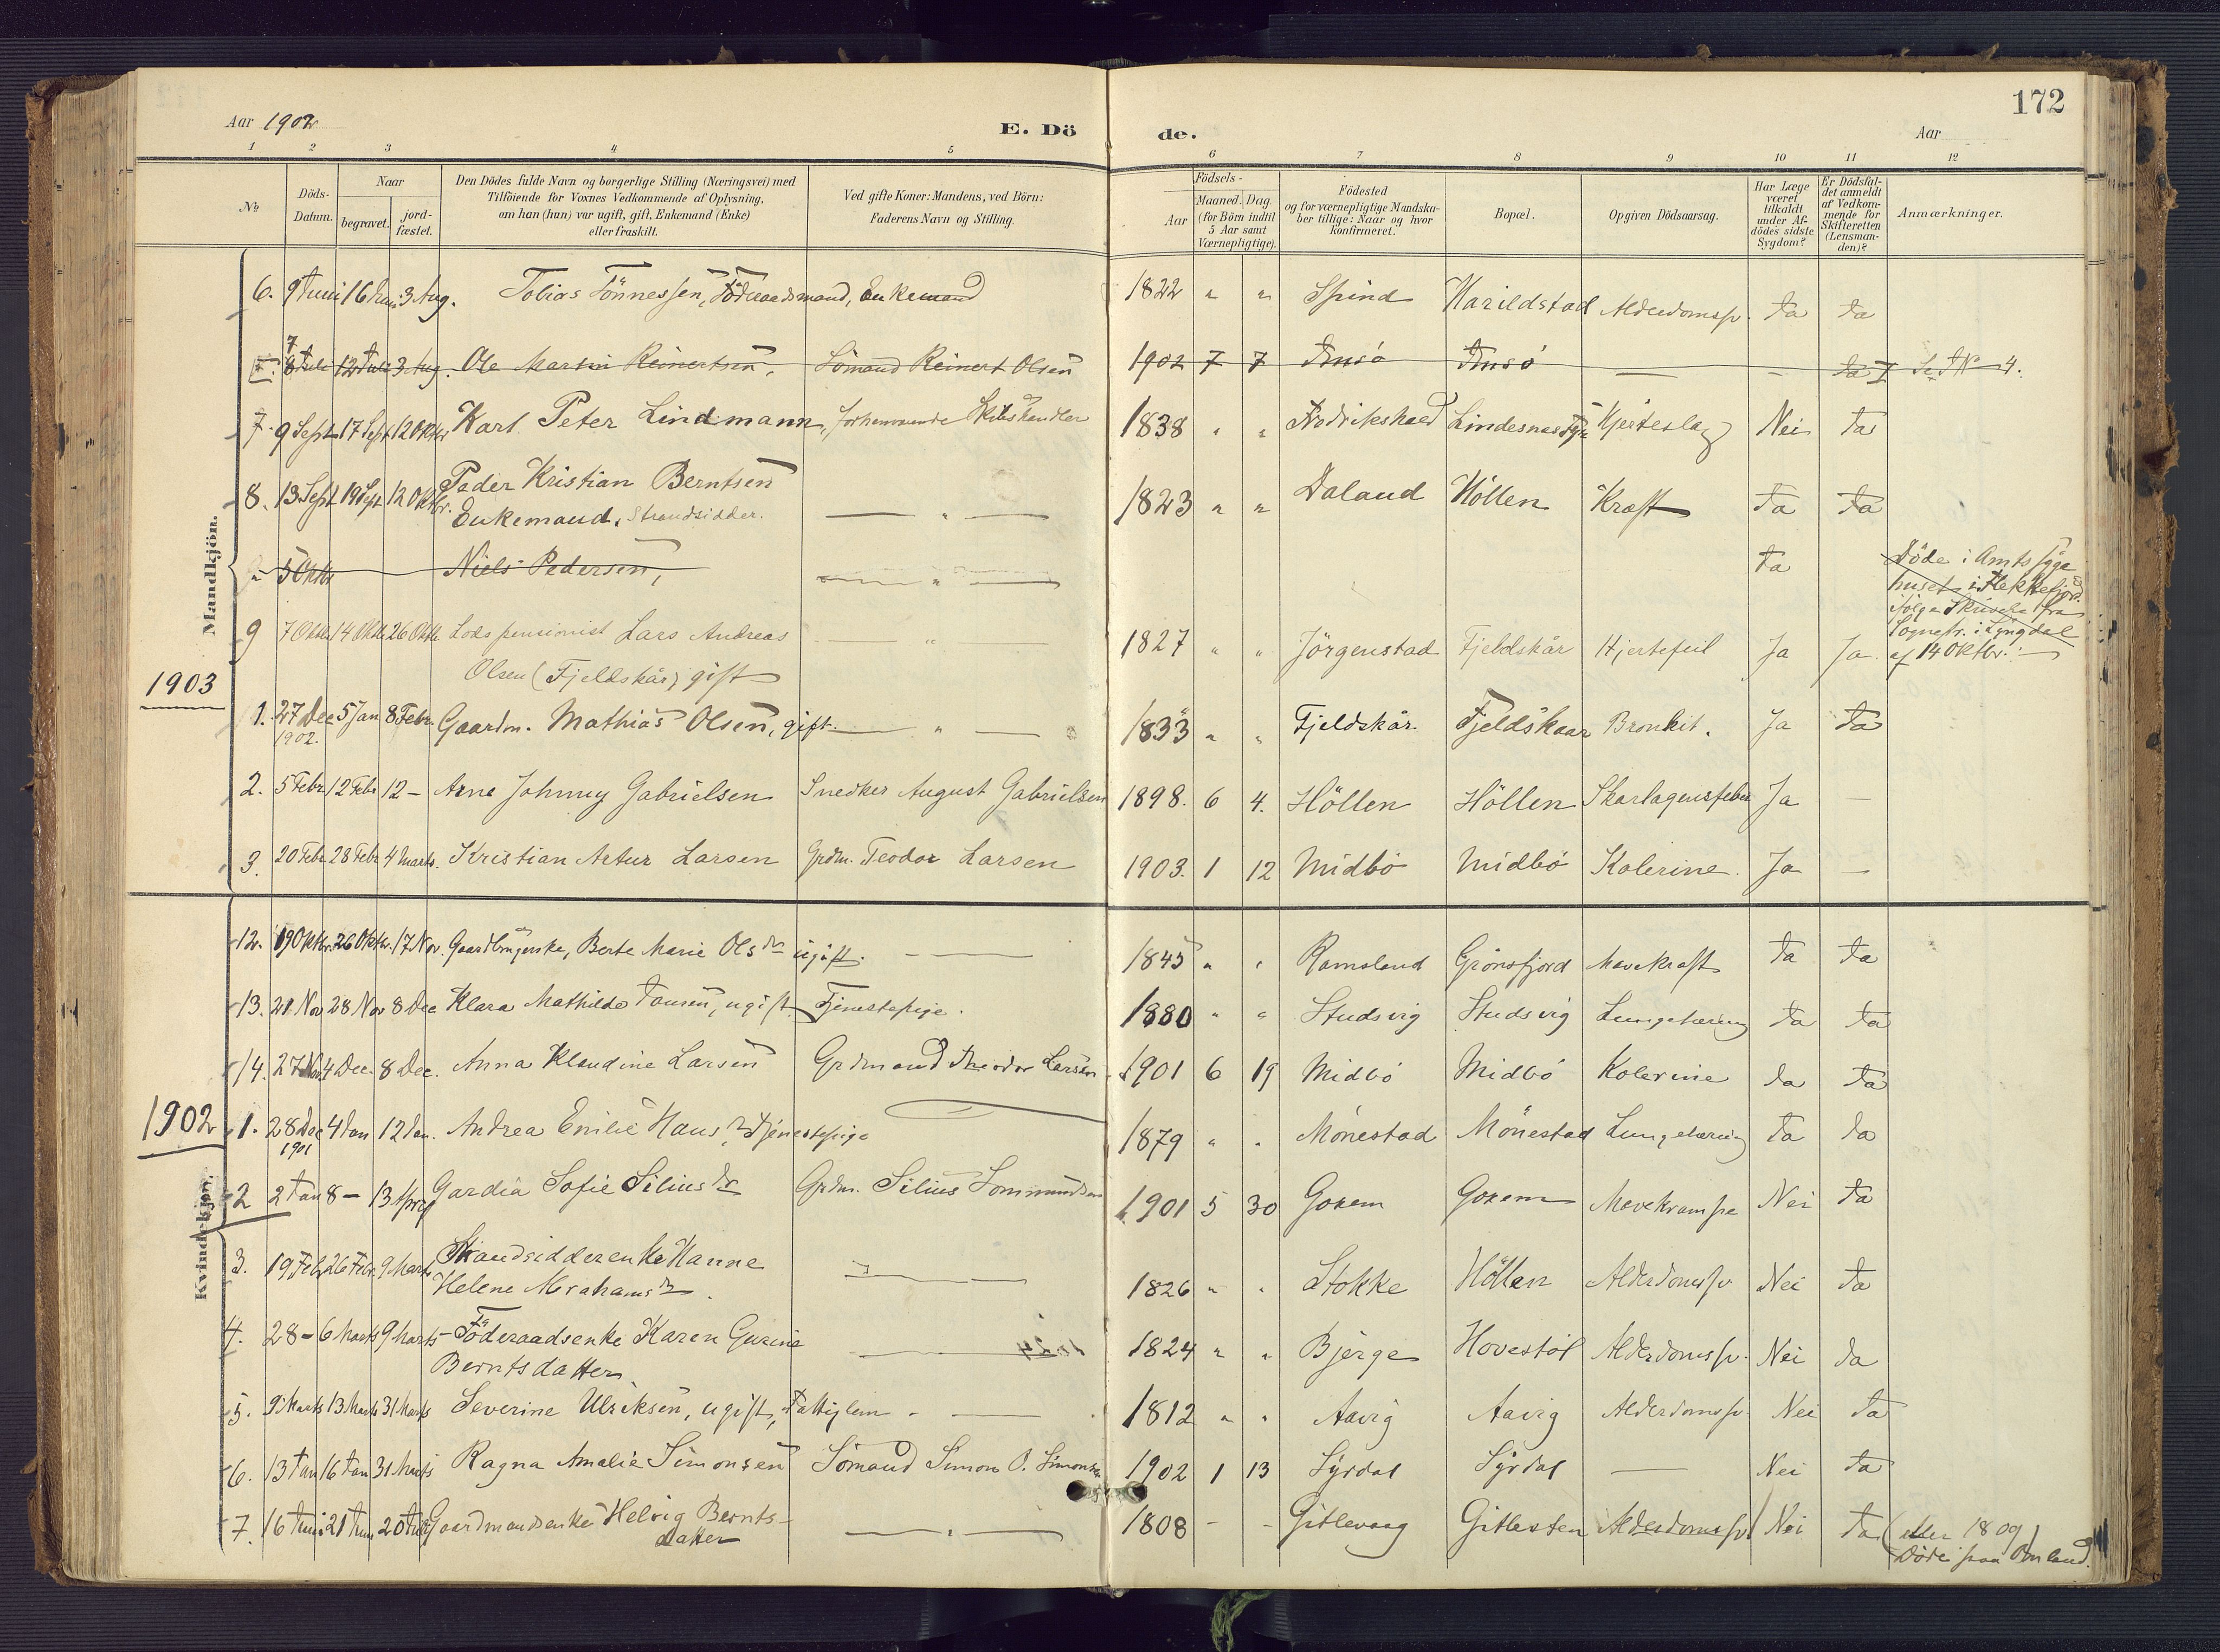 172
Aar 1902
E. Dö
de.
Aar
1 2 3 4 5 6 7 8 9 10 11 12
№
Döds-Datum.
Naar
begravet.
jord-fæstet.
Den Dödes fulde Navn og borgerlige Stilling (Næringsvei) med
Tilföiende for Voxnes Vedkommende af Oplysning,
om han (hun) var ugift, gift, Enkemand (Enke)
eller fraskilt.
Ved gifte Koner: Mandens, ved Börn:
Faderens Navn og Stilling.
Födsels-
Aar
Maaned. Dag.
(for Börn indtil
5 Aar samt
Værnepligtige).
Födested
og for værnepligtige Mandska-
ber tillige: Naar og hvor
konfirmeret.
Bopæl.
Opgiven Dödsaarsag.
Har Læge
været
tilkaldt
under Af-
dödes sidste
Sygdom?
Er Dödsfal-
det anmeldt
af Vedkom-
mende for
Skifteretten
(Lensman-
den)?
Anmærkninger.
Mandkjön.
6. 9 Juni 16 Juni 3 Aug. Tobias Tönnessen, Föderaadsmand, Enkemand 1822 " " Spind Karildstad Alderdomssv. Ja Ja
7
8 Juli 12 Juli 3 Aug. Ole Martin Reinertsen, Sömand Reinert Olsen 1902 7 7 — — Ja 4.
7. 9 Sept 17 Sept 12 Oktbr Karl Peter Lindmann, forhenværende Skibshandler 1838 " " Fredrikshald Lindesnæs Fyr Hjerteslag Nei Ja
8. 13 Sept 19 Sept 12 Oktbr. Peder Kristian Berntsen
Enkemand, Strandsidder. — " — 1823 " " Daland Höllen Kræft Ja Ja
" 5 Oktbr Niels Pedersen, — " — Ja Döde i Amtssyge
huset i Flekkefjord
ifölge Skrivelse fra
Sognepr. i Lyngdal
af 14 Oktbr. —
9 7 Oktbr 14 Oktb 26 Oktb. Lods pensionist Lars Andreas
Olsen (Fjeldskår) gift — " — 1827 " " Jörgenstad Fjeldskår Hjertefeil Ja Ja
1903
1. 27 Dec 5 Jan 8 Febr. Gaardm. Mathias Olsen, gift. — " — 1833 " " Fjeldskår. Fjeldskaar Bronkit. Ja Ja
1902.
2. 5 Febr 12 Febr 12 — Arne Johnny Gabrielsen Snedker August Gabrielsen 1898. 6 4. Höllen Höllen Skarlagensfeber Ja —
3. 20 Febr 28 Febr 4 Marts. Kristian Artur Larsen Grdm. Teodor Larsen 1903. 1 12 Midbö Midbö Kolerine. Ja —
Kvindekjön.
12. 19 Oktbr. 26 Oktbr. 17 Nov. Gaardbrugerske, Berte Marie Olsdr ugift. — 1845 " " Ramsland Grönsfjord Mavekræft Ja Ja
13. 21 Nov 28 Nov 8 Dec Klara Mathilde Jansen, ugift Tjenestepige. 1880 " " Studsvig Studsvig Lungetæring Ja Ja
14. 27 Nov 4 Dec. 8 Dec. Anna Klaudine Larsen Grdmand Theodor Larsen 1901 6 19 Midbö Midbö Kolerine Ja Ja
1902
1. 28 Dec 4 Jan 12 Jan. Andrea Emilie Hansdr Tjenestepige 1879 " " Mönestad Mönestad Lungetæring Ja Ja
1901
2 2 Jan 8 — 13 April Gardia Sofie Siliusdr Grdm. Silius Tommundsen 1901 5 30 Gonem Gonem Mavekrampe Nei Ja
3. 19 Feb 26 Febr 9 Marts Strandsidderenke Hanne
Helene Abrahamsdr. — 1826 " " Stokke Höllen Alderdomssv Nei Ja
4. 28 — 6 Marts 9 Marts — Föderaadsenke Karen Gurine
Berntsdatter. — 1824 " " Bjerge Hovestöl Alderdomssv. Nei Ja
5. 9 Marts 13 Marts 31 Marts Severine Ulriksen, ugift, Fattiglem — 1812 " " Aavig Aavig Alderdomssv. Nei Ja
6. 13 Jan 16 Jan 31 Marts Ragna Amalie Simonsen Sömand Simon O. Simonsen 1902 1 13 Syrdal Syrdal — Nei Ja
7. 16 Juni 21 Juni 20 Juli Gaardmandsenke Helvig Bernts-
datter — " — 1808 - - Gitlevaag Gitlesten Alderdomssv Nei Ja (eller 1809)
Döde paa Omland.